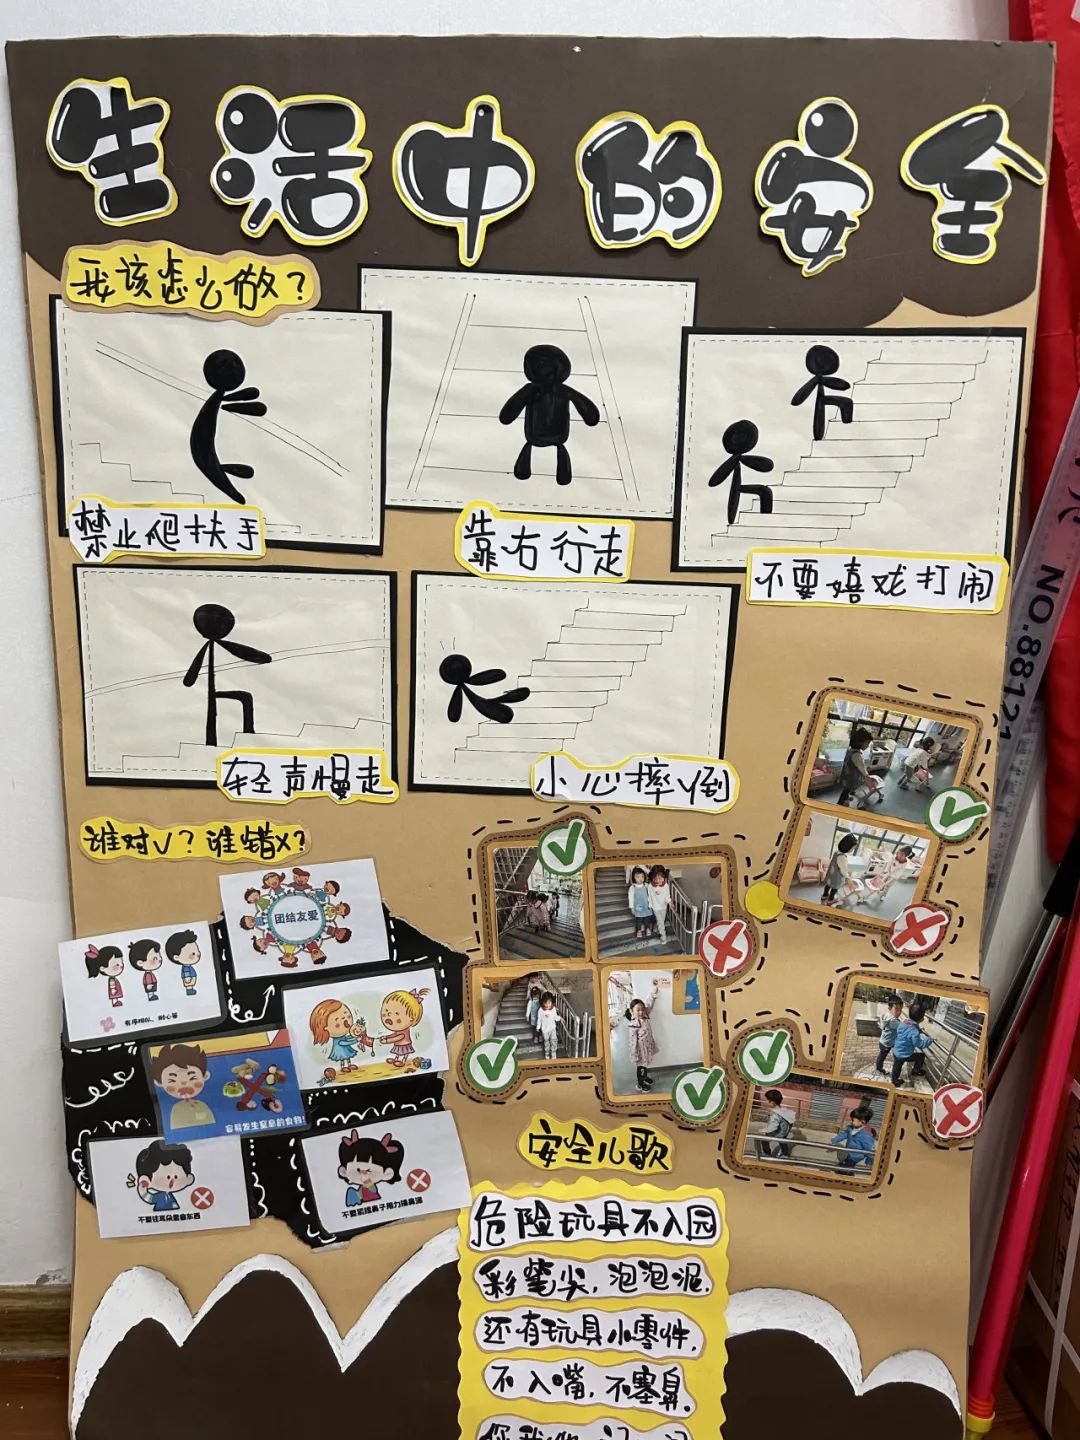 生活中的安全
我该怎么做?
禁止爬扶手
靠右行走
不要嬉戏打闹
轻声慢走
小心摔倒
谁对√?谁错X?
团结友爱
有序排队、耐心等
容易发生窒息的食物!
不要往耳朵里塞东西
安全儿歌
危险玩具不入园
彩笔尖,泡泡泥.
还有玩具小零件,
不入嘴,不塞鼻。
NO.88121